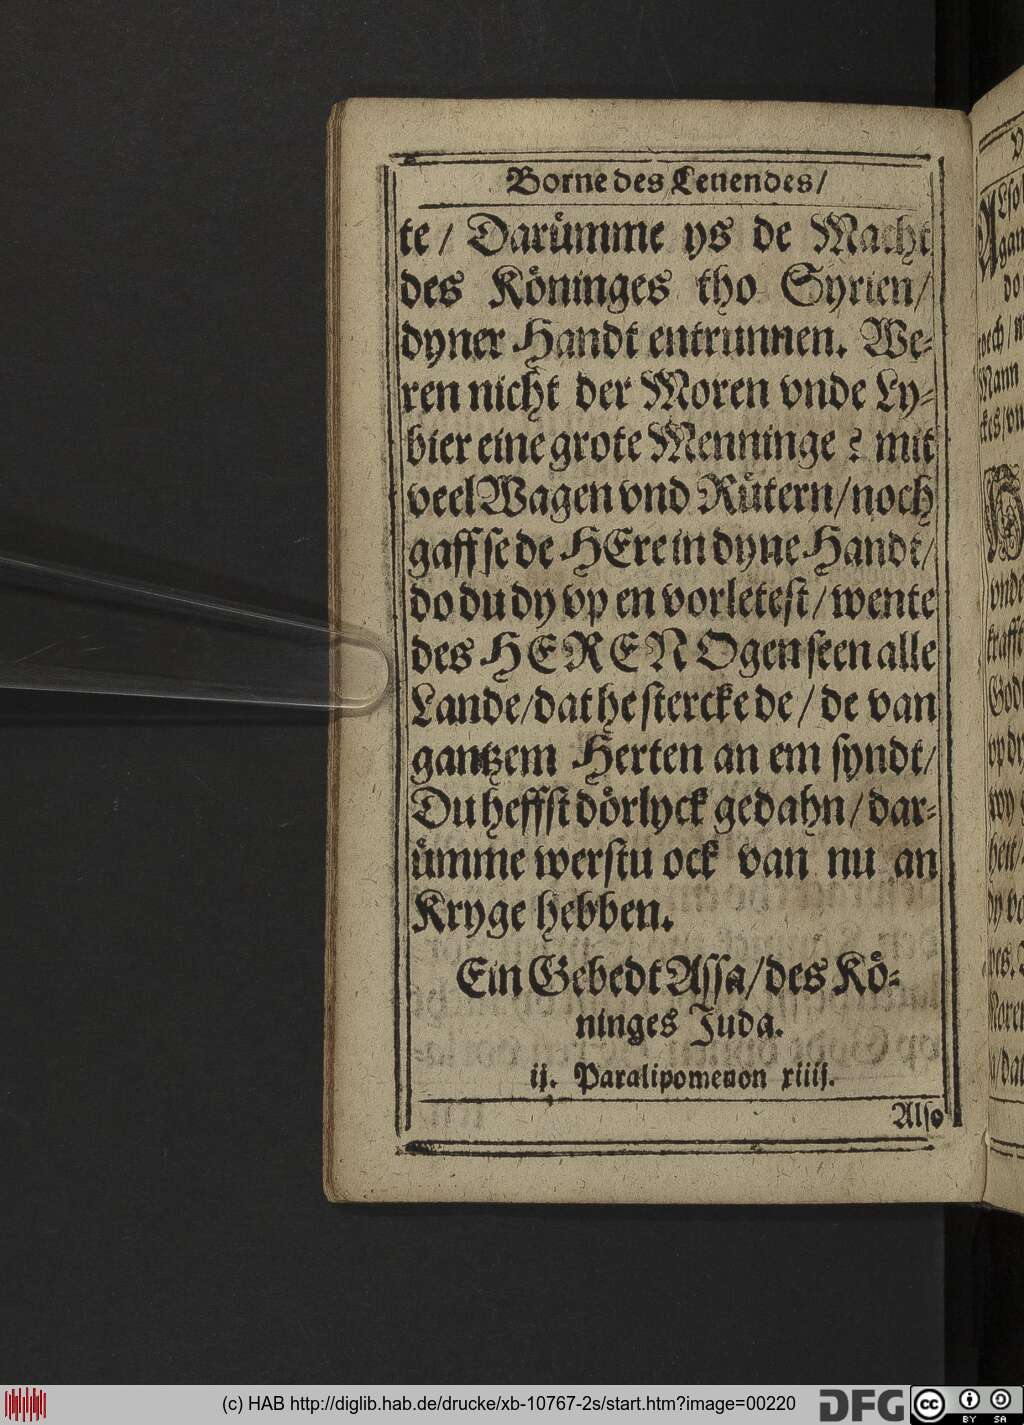 Borne des Leuendes/
te/ Darümme ys de Macht
des Köninges tho Syrien/
dyner Handt entrunnen. We-
ren nicht der Moren vnde Ly-
bier eine grote Menninge? mit
veel Wagen vnd Rütern/ noch
gaff se de HEre in dyne Handt/
do du dy vp en vorletest/ wente
des HEREN Ogen seen alle
Lande/ dat he stercke de/ de van
gantzem Herten an em syndt/
Du heffst dörlyck gedahn/ dar-
ümme werstu ock van nu an
Kryge hebben.
Ein Gebedt Assa/ des Kö-
ninges Juda.
ij. Paralipomenon xiiij.
Also
(c) HAB http://diglib.hab.de/drucke/xb-10767-2s/start.htm?image=00220
DFG
cc BY SA